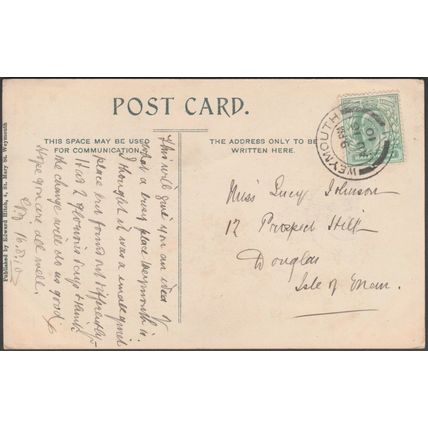 POST CARD.
THIS SPACE MAY BE USED
FOR COMMUNICATION.
THE ADDRESS ONLY TO BE
WRITTEN HERE.
This will give you an idea of
what a busy place Weymouth is.
I thought it was a small quiet
place but found out differently.
Had 2 glorious days & think
the change will do us good.
Hope you are all well.
16.8.10
Miss Lucy Johnson
12 Prospect Hill
Douglas
Isle of Man.
WEYMOUTH
Published by Edward Hitch, St. Mary St. Weymouth